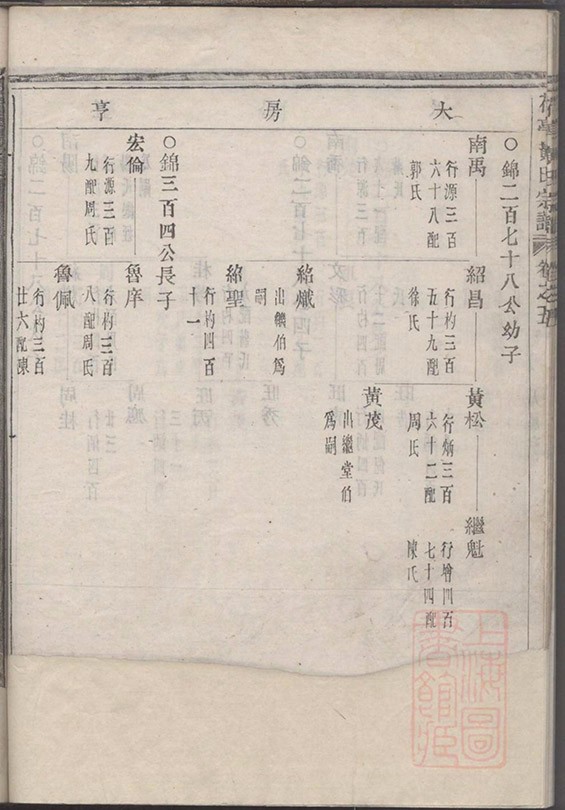 大房亨
○錦二百七十八公幼子
南禹
行源三百
六十八配
郭氏
紹昌
行杓三百
五十九配
徐氏
黃松
行炳三百
六十二配
周氏
繼魁
行增四百
七十四配
陳氏
黃茂
出繼堂伯
爲嗣
紹熾
出繼伯爲
嗣
紹聖
行杓四百
十一
○錦三百四公長子
宏倫
行源三百
九配周氏
魯庠
行杓三百
八配周氏
魯佩
行杓三百
廿六配陳
卷之五
宗譜
上海圖
書館藏